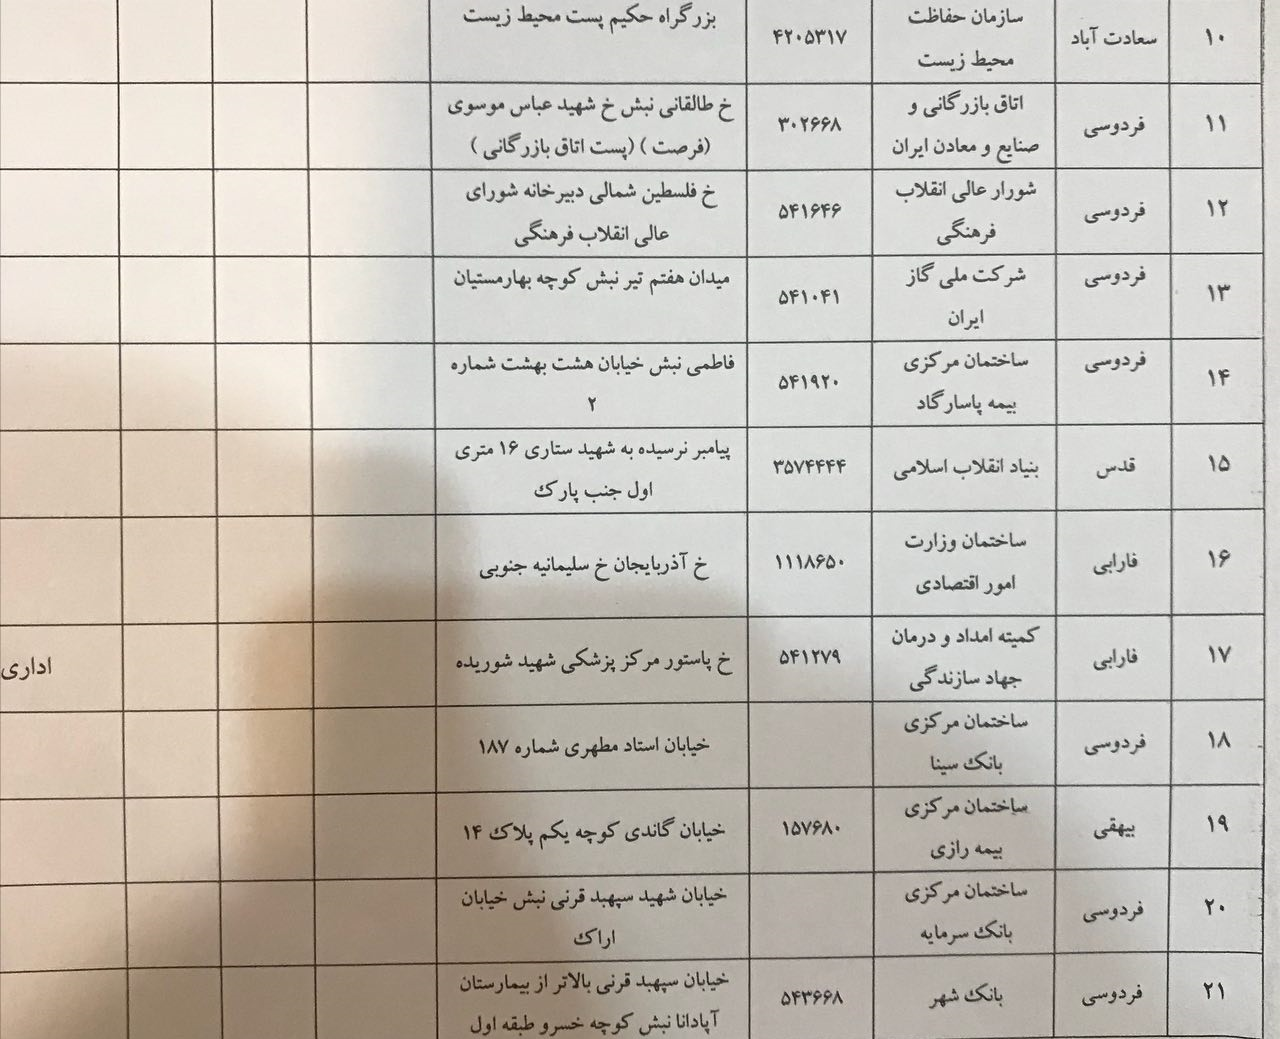 ۱۰ سعادت آباد سازمان حفاظت محیط زیست ۴۲۰۵۳۱۷ بزرگراه حکیم پست محیط زیست
۱۱ فردوسی اتاق بازرگانی و صنایع و معادن ایران ۳۰۲۶۶۸ خ طالقانی نبش خ شهید عباس موسوی (فرصت ) (پست اتاق بازرگانی )
۱۲ فردوسی شورار عالی انقلاب فرهنگی ۵۴۱۶۴۶ خ فلسطین شمالی دبیرخانه شورای عالی انقلاب فرهنگی
۱۳ فردوسی شرکت ملی گاز ایران ۵۴۱۰۴۱ میدان هفتم تیر نبش کوچه بهارمستیان
۱۴ فردوسی ساختمان مرکزی بیمه پاسارگاد ۵۴۱۹۲۰ فاطمی نبش خیابان هشت بهشت شماره ۲
۱۵ قدس بنیاد انقلاب اسلامی ۳۵۷۴۴۴۴ پیامبر نرسیده به شهید ستاری ۱۶ متری اول جنب پارک
۱۶ فارابی ساختمان وزارت امور اقتصادی ۱۱۱۸۶۵۰ خ آذربایجان خ سلیمانیه جنوبی
۱۷ فارابی کمیته امداد و درمان جهاد سازندگی ۵۴۱۲۷۹ خ پاستور مرکز پزشکی شهید شوریده اداری
۱۸ فردوسی ساختمان مرکزی بانک سینا خیابان استاد مطهری شماره ۱۸۷
۱۹ بیهقی ساختمان مرکزی بیمه رازی ۱۵۷۶۸۰ خیابان گاندی کوچه یکم پلاک ۱۴
۲۰ فردوسی ساختمان مرکزی بانک سرمایه خیابان شهید سپهبد قرنی نبش خیابان اراک
۲۱ فردوسی بانک شهر ۵۴۳۶۶۸ خیابان سپهبد قرنی بالاتر از بیمارستان آپادانا نبش کوچه خسرو طبقه اول